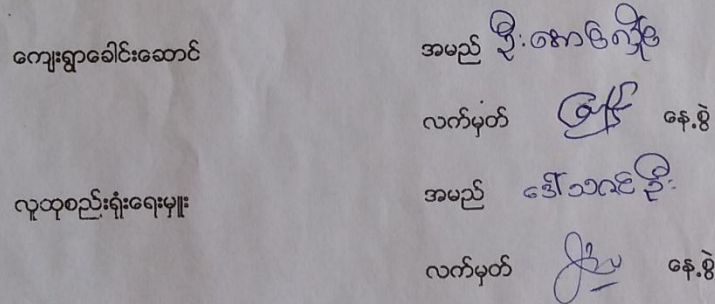 ကျေးရွာခေါင်းဆောင် အမည် ဦးအောင်လှိုင်
လက်မှတ် နေ့စွဲ
လူထုစည်းရုံးရေးမှူး အမည် ဒေါ်သဇင်ဦး
လက်မှတ် နေ့စွဲ